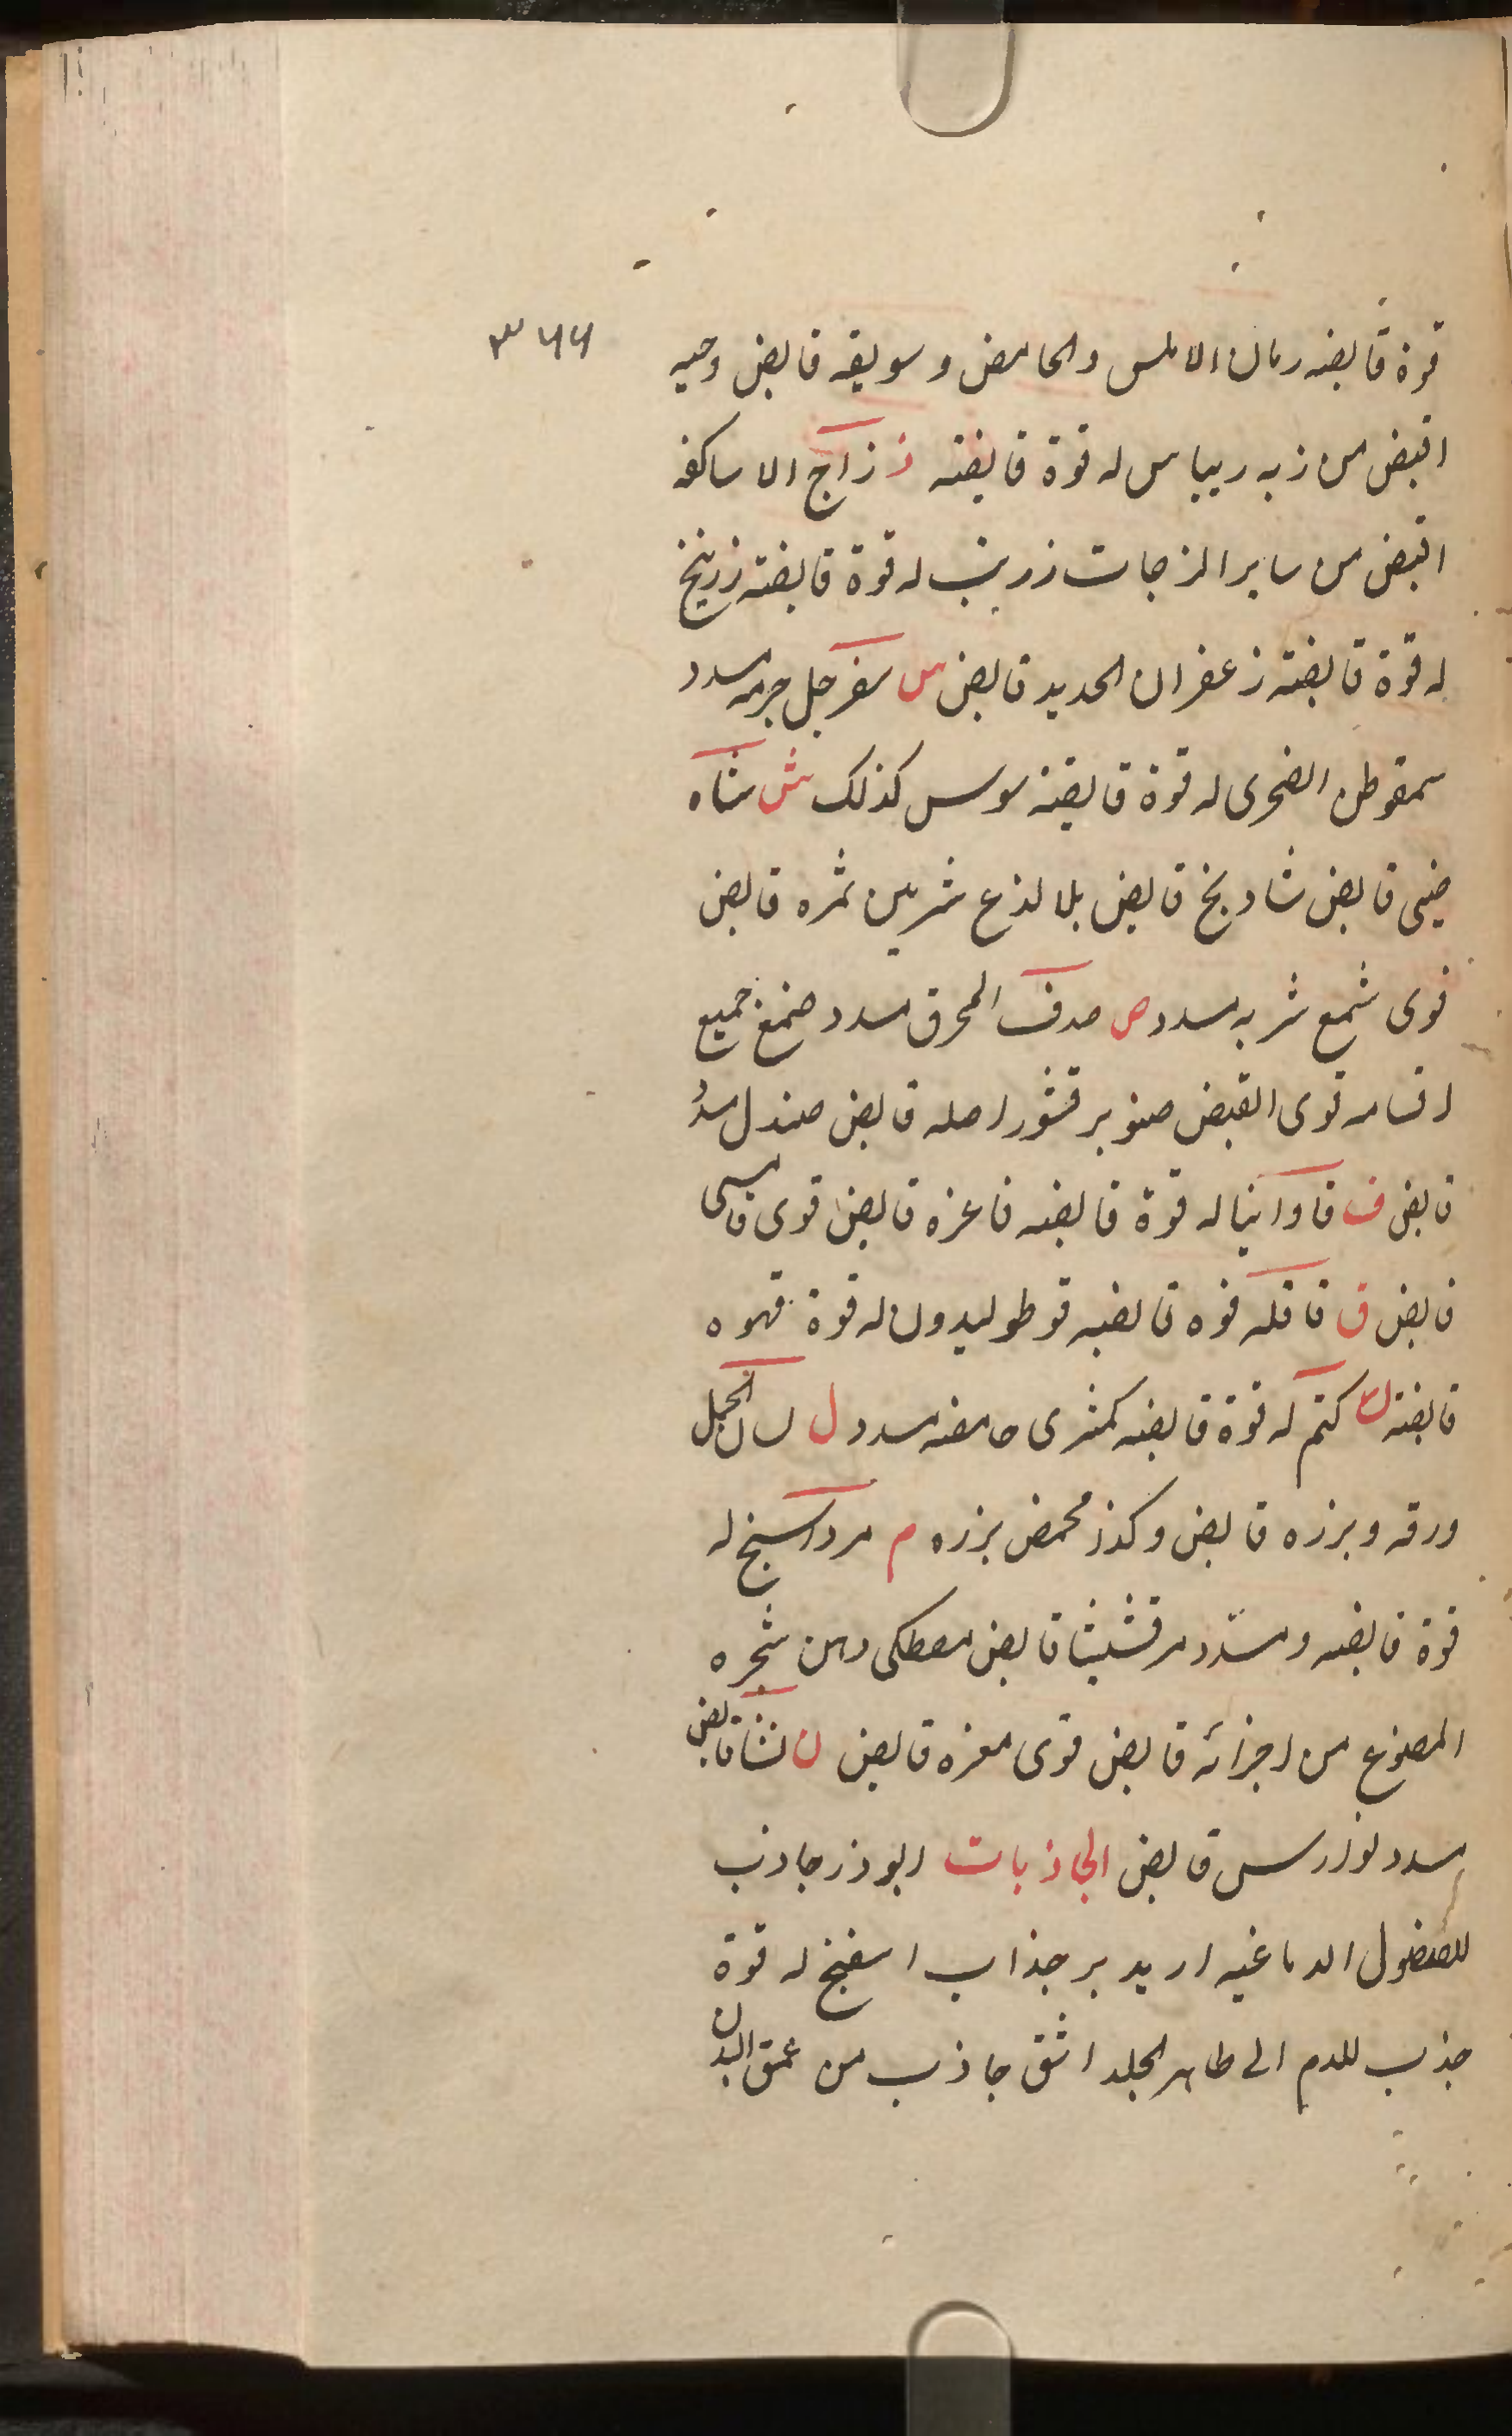 ٣٦٦
قوة قابضه رمان الاملس والحامض وسويقه قابض وحبه
اقبض من زبه ريباس له قوة قابضته ز زاج الاساكفه
اقبض من ساير الزجات زرنب له قوة قابضته زرنيخ
له قوة قابضته زعفران الحديد قابض س سفرجل جرمه مسدد
سمقوطن الصخرى له قوة قابضة سوس كذلك ش شاه
صينى قابض شادنج قابض بلا لذع شربين ثمره قابض
قوى شمع شربه مسدد ص صدف المحرق مسدد صمغ جميع
اقسامه قوى القبض صنوبر قشور اصله قابض صندل مسدد
قابض ف فاوانيا له قوة قابضه فاغره قابض قوى
قابض ق قاقله قوه قابضه قوطوليدون له قوة قهوه
قابضته ك كتم له قوة قابضه كمثرى حامضه مسدد ل لسان الحمل
ورقه وبزره قابض وكذا محمض بزره م مرداسنج له
قوة قابضه ومسدد مرقشيثا قابض مصطكى دهن شجره
المصنوع من اجزائه قابض قوى مغره قابض ن نشا قابض
مسدد قابض الجاذبات ابوذر جاذب
للفضول الدماغيه اريد بر جذاب اسفنج له قوة
جذب للدم الى ظاهر الجلد اشق جاذب من عمق البدن